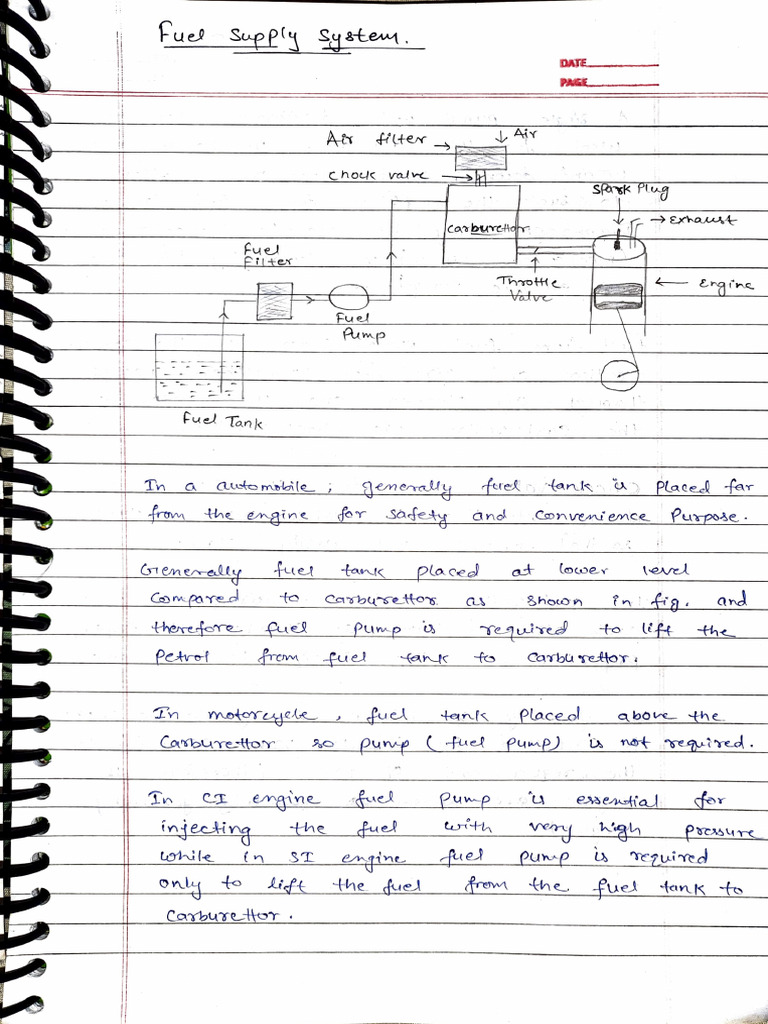 Fuel Supply System.
DATE
PAGE
Air filter
Air
Chock valve
Spark Plug
Exhaust
Carburettor
Fuel
Filter
Throttle
Valve
Engine
Fuel
Pump
Fuel Tank
In a automobile, generally fuel tank is placed far
from the engine for safety and convenience Purpose.
Generally fuel tank placed at lower level
compared to carburettor as shown in fig. and
therefore fuel pump is required to lift the
Petrol from fuel tank to carburettor.
In motorcycle, fuel tank placed above the
Carburettor so pump (fuel pump) is not required.
In CI engine fuel pump is essential for
injecting the fuel with very high pressure
while in SI engine fuel pump is required
only to lift the fuel from the fuel tank to
carburettor.